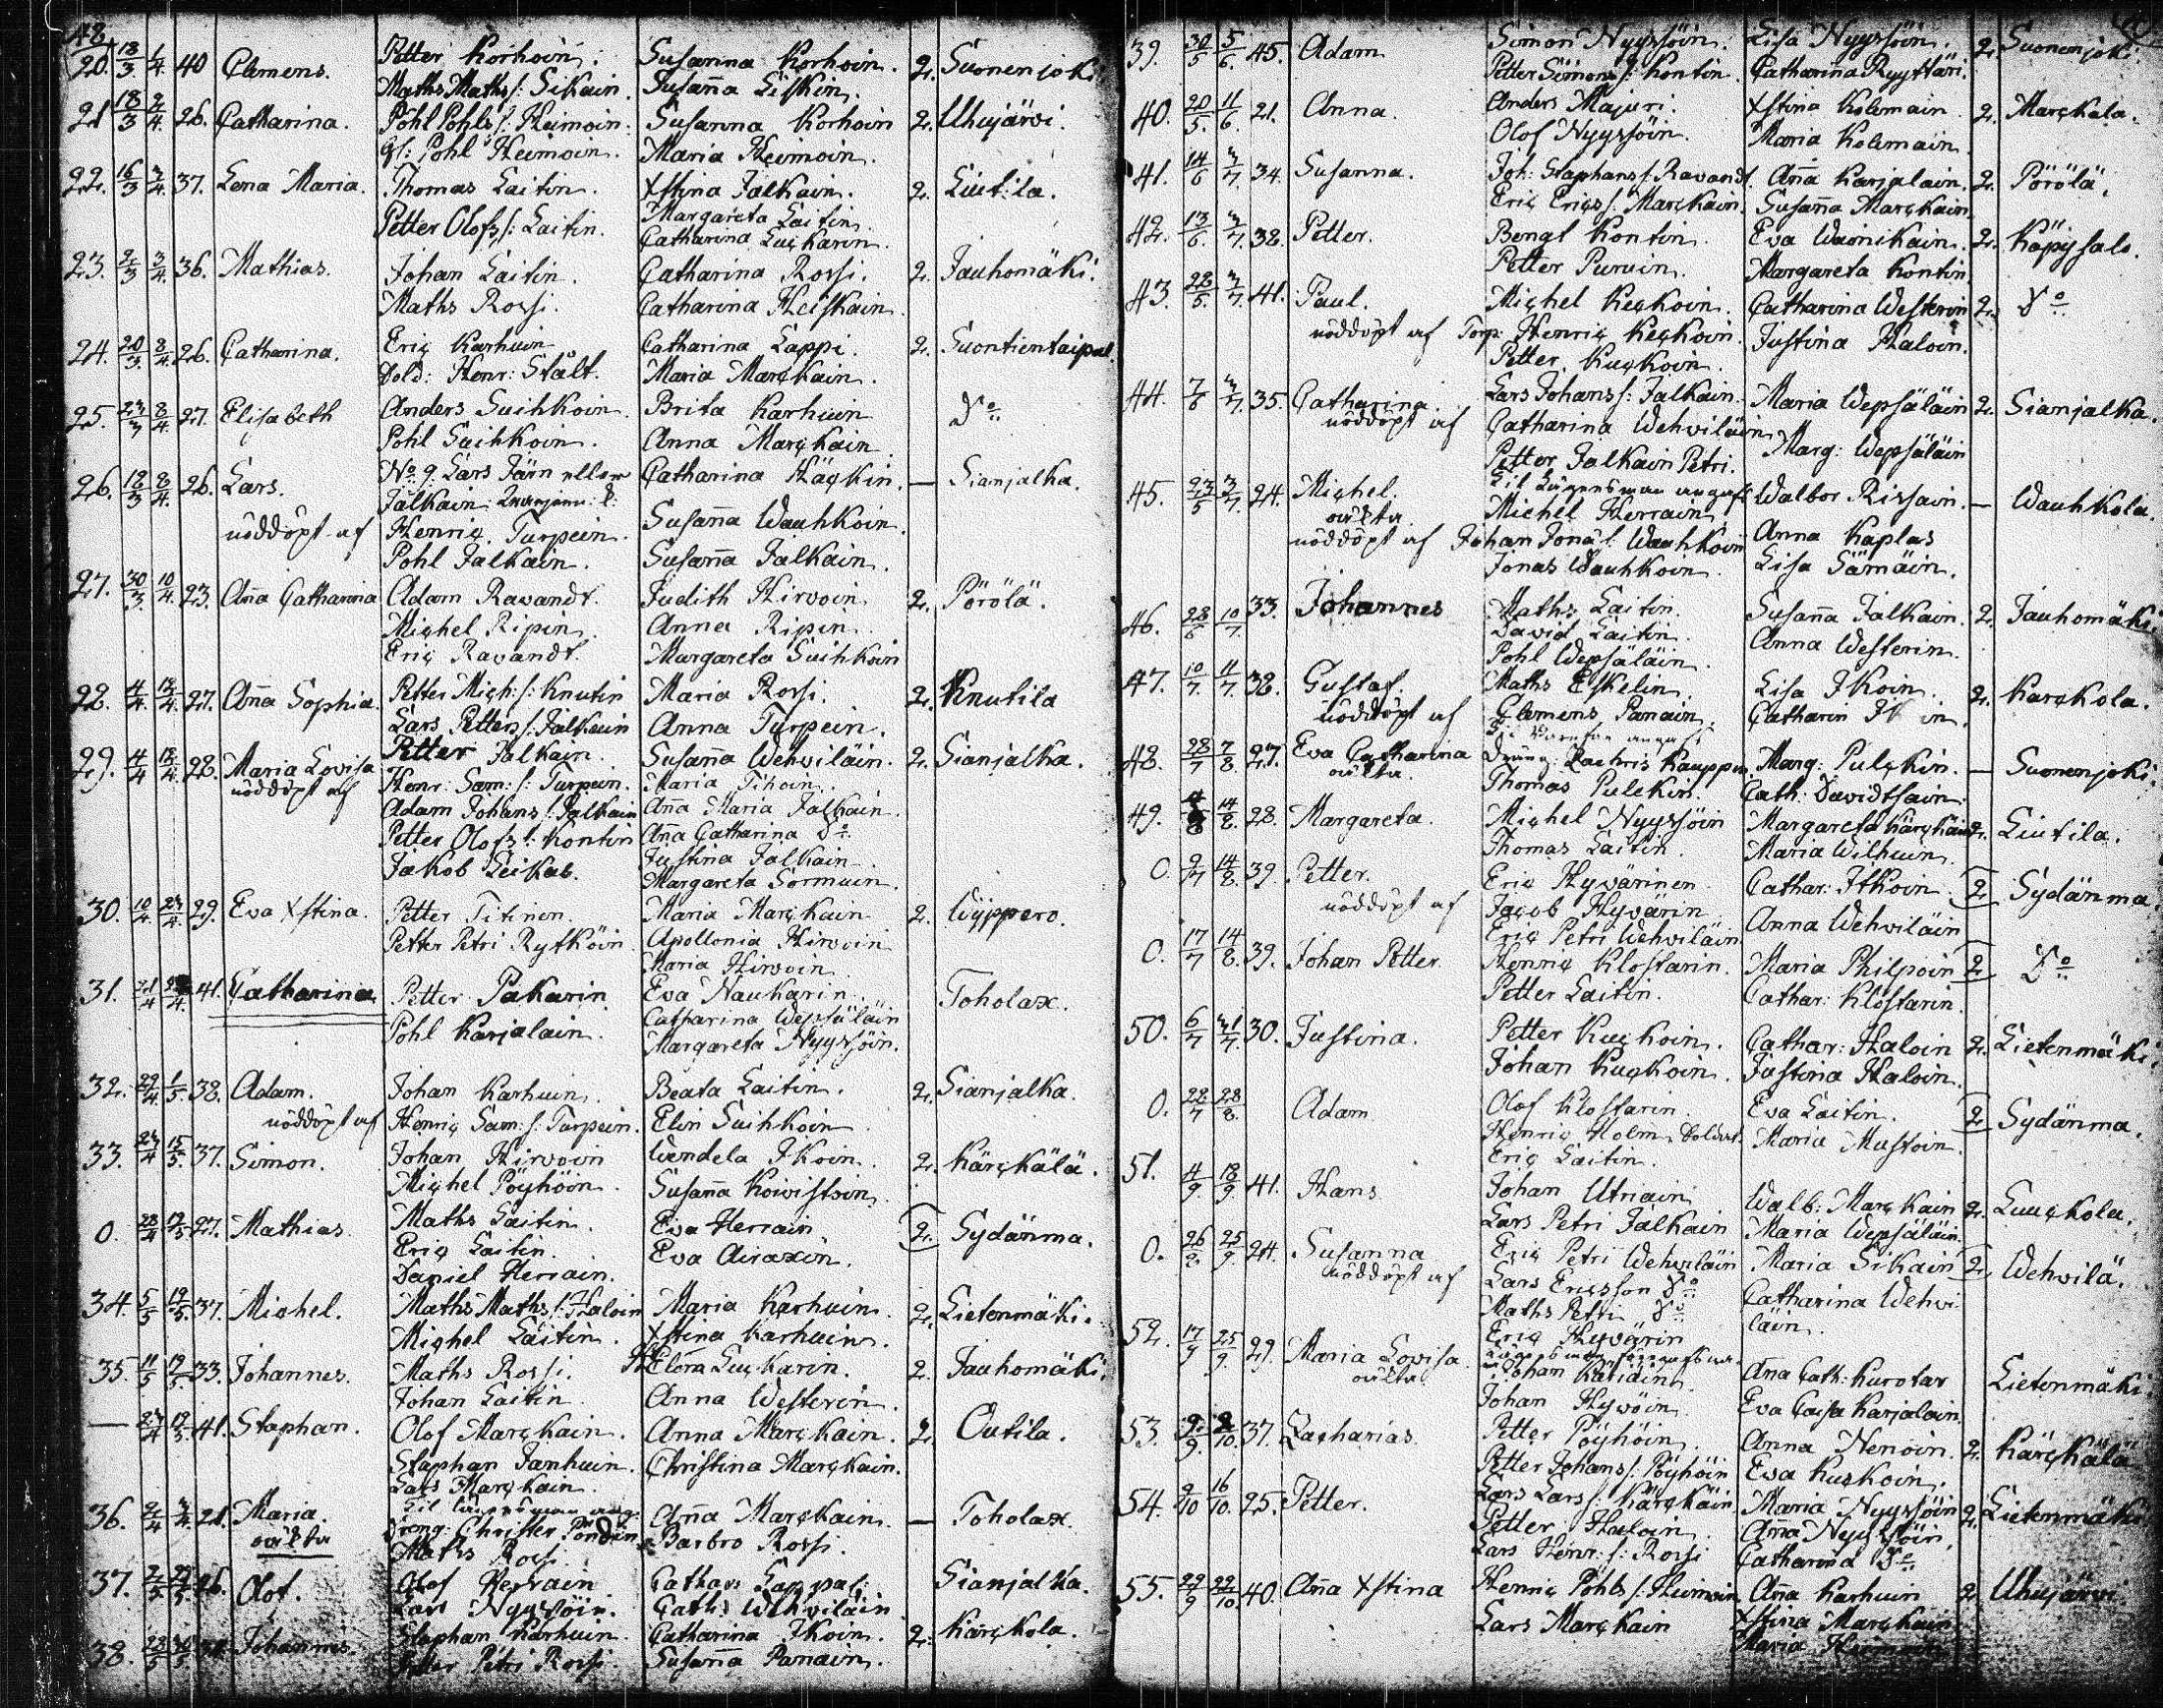 48
20. 18/3 1/4 40 Clemens. Petter Korhoin. Susanna Korhoin. 2. Suonenjoki.
Maths Maths s: Sikain. Susaña Siskin.
21 18/3 2/4. 26. Catharina. Pohl Pohls s: Heimoin. Susanna Korhoin 2. Uhujärvi.
gl: Pohl Heimoin. Maria Heimoin.
22. 16/3 3/4. 37. Lena Maria. Thomas Laitin. Xstina Jalkain. 2. Liutila.
Petter Olofs s: Laitin. Margareta Laitin.
Catharina Luckarin.
23. 2/3 3/4. 36. Mathias. Johan Laitin. Catharina Rossi. 2. Jauhomäki.
Maths Rossi. Catharina Heiskain.
24. 20/3. 8/4. 26. Catharina. Eric Karhuin Catharina Lappi. 2. Suontientaipal.
Sold: Henr: Stålt. Maria Marckain.
25. 8/4. 27. Elisabeth Anders Suihkoin. Brita Karhuin Do
Pohl Suihkoin. Anna Marckain
26. 18/3 8/4. 26. Lars. No 9. Lars Järn eller Catharina Häckin. — Sianjalka.
Jalkain.
nöddöpt af Henric Turpein. Susaña Wauhkoin.
Pohl Jalkain. Susaña Jalkain.
27. 30/3. 10/4. 23. Aña Catharina Adam Ravandt. Judith Hirvoin. 2. Pörölä.
Michel Ripin. Anna Ripin.
Eric Ravandt. Margareta Suihkoin
28. 4/4. 18/4. 27. Aña Sophia. Petter Mich: s: Knutin Maria Rossi. 2. Knutila
Lars Petters s: Jalkain Anna Turpein.
29. 4/4 18/4. 28. Maria Lovisa Petter Jalkain. Susaña Wehviläin. 2. Sianjalka.
nöddöpt af Henr: Sam: s: Turpein. Maria Tikoin.
Adam Johans s: Jalkain Aña Maria Jalkain.
Petter Olofs s: Kontin Aña Catharina Do
Jakob Leikas. Justina Jalkain.
Margareta Sormuin.
30. 10/4. 29. Eva Xstina. Petter Titinen. Maria Marckain 2. Wyppero.
Petter Petri Rytköin. Apollonia Hirvoin
Maria Hirvoin.
31. 41. Catharina Petter Pakarin Eva Naukarin. Toholax.
Pohl Karjalain. Catharina Wepsäläin
Margareta Nyyssöin.
32. 29/4 1/5. 38. Adam. Johan Karhuin. Beata Laitin. 2. Sianjalka.
nöddöpt af Henric Sam: s: Turpein. Elin Suihkoin
33. 15/5. 37. Simon. Johan Hirvoin Wendela Ikoin. 2. Kärckälä.
Michel Pöyhöin. Susaña Koivistoin.
0. 28/4 19/5 27. Mathias. Maths Laitin. Eva Herrain 2. Sydänma.
Eric Laitin. Eva Airaxin.
Daniel Herrain.
34. 5/5 19/5. 37. Michel. Maths Maths s: Haloin Maria Karhuin. 2. Lietenmäki.
Michel Laitin. Xstina Karhuin.
35. 11/5 19/5. 33. Johannes. Maths Rossi. Luckarin. 2. Jauhomäki.
Johan Laitin. Anna Westerin.
— 19/5. 41. Staphan. Olof Marckain. Anna Marckain. 2. Outila.
Staphan Janhuin. Christina Marckain.
Lars Marckain.
36. 21. Maria. Til länsman ang: Aña Marckain. — Toholax.
oäkta dreng: Christer Barbro Rossi.
Maths Rossi.
37. 26. Olof. Olof Herrain Cathar: Sianjalka.
Lars Nyyssöin. Cath: Wehviläin
38. Johannes. Staphan Karhuin. Catharina Ikoin. 2. Kärckola.
Petter Petri Rossi. Susaña Panain.
39. 30/5 5/6. 45. Adam Simon Nyyssöin. Lisa Nyyssöin. 2. Suonenjoki.
Petter Simons s: Kontin. Catharina Ryyttäri.
40. 20/5. 11/6. 21. Anna. Anders Majuri. Xstina Kolemain 2. Marckala.
Olof Nyyssöin. Maria Kolemain.
41. 14/6 3/7. 34. Susanna. Joh: Staphans s: Ravandt. Aña Karjalain. 2. Pörölä.
Eric Erics s: Marckain. Susaña Marckain.
42. 13/6. 3/7. 38. Petter. Bengt Kontin. Eva Wainikain. 2. Käpysalo.
Petter Puruin. Margareta Kontin.
43. 28/5. 3/7. 41. Paul. Michel Keckoin. Catharina Westerin 2. Do
nöddöpt af Torp: Henric Keckoin. Justina Haloin.
Petter Kuckoin.
44. 7/6 3/7. 35. Catharina. Lars Johans s: Jalkain. Maria Wepsäläin 2. Sianjalka.
nöddöpt af Catharina Wehviläin
Petter Jalkain Petri. Marg: Wepsäläin
45. 23/5 3/7. 24. Michel. Til Länsman angaf Walbor Rissain. — Wauhkola.
oäkta. Michel Herrain. Anna Kaplas
nöddöpt af Johan Jona s: Wauhkoin
Jonas Wauhkoin. Lisa Sämäin.
46. 28/6 10/7. 33. Johannes Maths Laitin. Susaña Jalkain. 2. Jauhomäki.
David Laitin. Anna Westerin.
Pohl Wepsäläin.
47. 10/7. 11/7. 38. Gustaf. Maths Eskelin. Lisa Ikoin. 2. Karckola.
nöddöpt af Clemens Panain. Catharin
48. 28/7 7/8. 27. Eva Catharina Dräng: Zachris Kauppin. Marg: Pulckin. — Suonenjoki.
oäkta. Thomas Pulckin. Cath: Davidtsain.
49. 14/8. 28. Margareta. Michel Nyyssöin Margareta Kärckäin 2. Liutila.
Thomas Laitin. Maria Wilhuin.
0. 9/7 14/8. 39. Petter. Eric Hyvärinen Cathar: Itkoin. 2 Sydänma.
nöddöpt af Jacob Hyvärin. Anna Wehviläin
Eric Petri Wehviläin
0. 17/7 14/8. 39. Johan Petter. Henric Klostarin. Maria Philpoin 2 Do
Petter Laitin. Cathar: Klostarin.
50. 6/7 30. Justina. Petter Kuckoin. Cathar: Haloin 2. Lietenmäki.
Johan Kuckoin. Justina Haloin.
0. 28/7 28/8. Adam Olof Klostarin. Eva Laitin. 2 Sydänma.
Henric Holm. Soldat. Maria Mustoin.
Eric Laitin.
51. 4/9. 18/9 41. Hans Johan Utriain Walb: Marckain 2. Luuckola.
Lars Petri Jalkain Maria Wepsäläin.
0. 26/8 25/9. 24. Susanna Eric Petri Wehviläin Maria Sikain 2. Wehvilä.
nöddöpt af Lars Ericsson Do Catharina Wehvi
Maths Petri Do läin.
52. 17/9 25/9. 29. Maria Lovisa. Eric Hyvärin
oäkta. Johan Katidin. Aña Cath: Kurotar Lietenmäki.
Johan Hyvöin Eva Caisa Karjalain.
53. 37. Zacharias. Petter Pöyhöin. Anna Nenoin. 2. Kärckälä.
Petter Johans s: Pöyhöin Eva Kuckoin.
54. 9/10 16/10. 25. Petter. Lars Lars s: Kärckäin Maria Nyyssöin 2. Lietenmäki
Petter Haloin. Aña Nyyssöin.
Lars Henr: s: Rossi Catharina Do
55. 29/9 22/10. 40. Aña Xstina Henric Pohls s: Heimoin Aña Karhuin 2. Uhujärvi
Lars Marckain Xstina Marckain
Maria